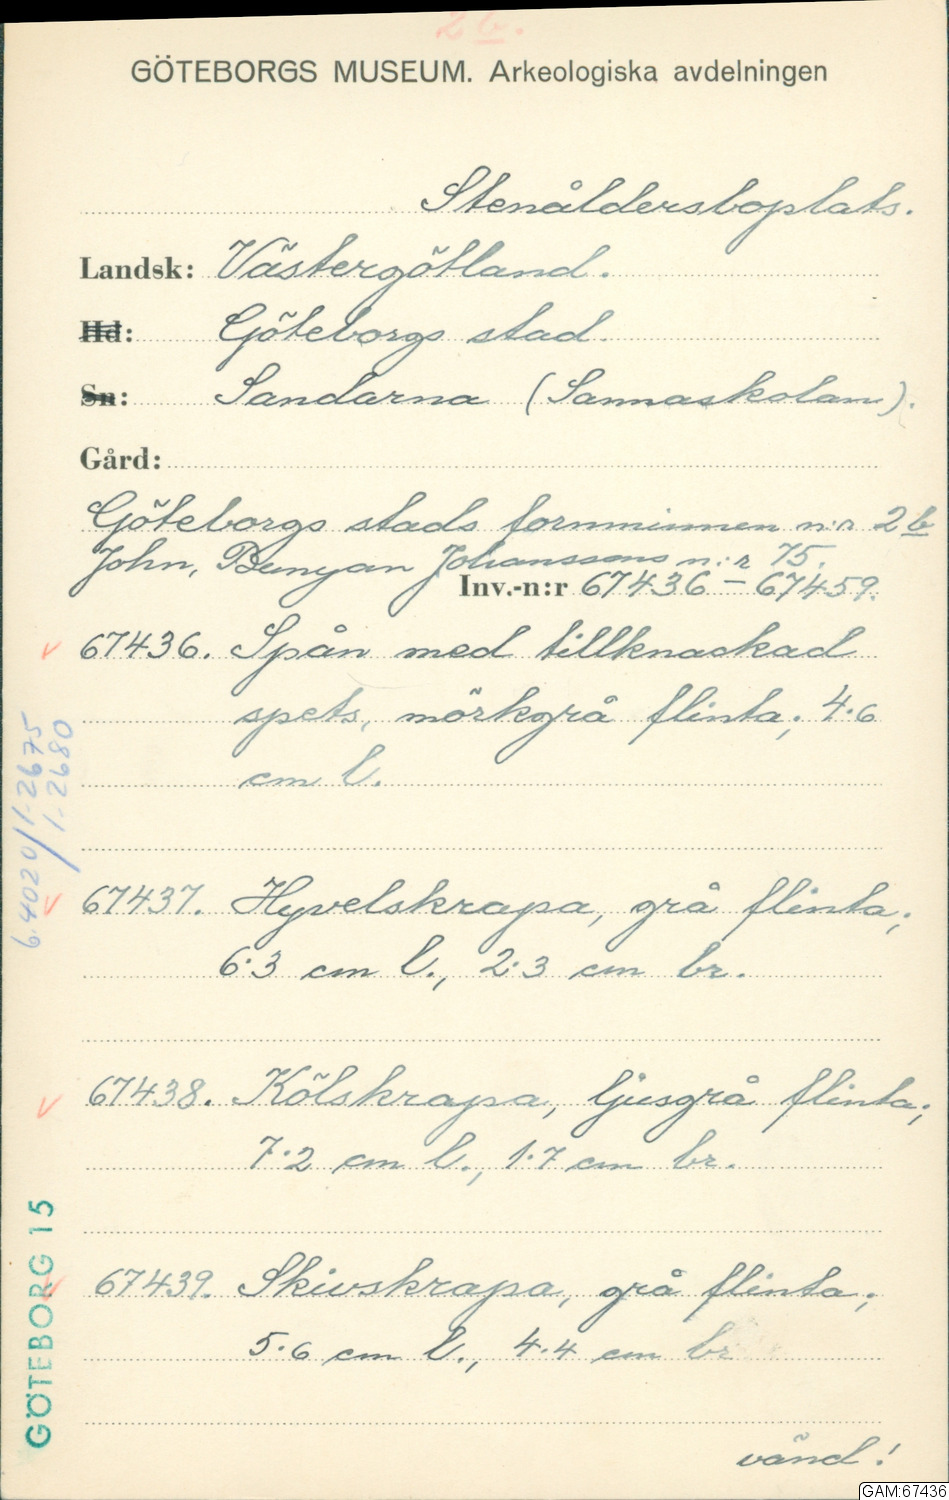 2 b.
GÖTEBORGS MUSEUM. Arkeologiska avdelningen
Stenåldersboplats.
Landsk: Västergötland.
Hd: Göteborgs stad.
Sn: Sandarna (Sannaskolan).
Gård:
Göteborgs stads fornminnen n:r 2b
John, Bunyan Johanssons n:r 75.
Inv.-n:r 67436 – 67459.
67436. Spån med tillknackad
spets, mörkgrå flinta; 4.6
cm l.
67437. Hyvelskrapa, grå flinta;
6.3 cm l., 2.3 cm br.
67438. Kölskrapa, ljusgrå flinta;
7.2 cm l., 1.7 cm br.
67439. Skivskrapa, grå flinta;
5.6 cm l., 4.4 cm br
vänd!
6.4020/1-2675
/1-2680
GÖTEBORG 15
GAM:67436